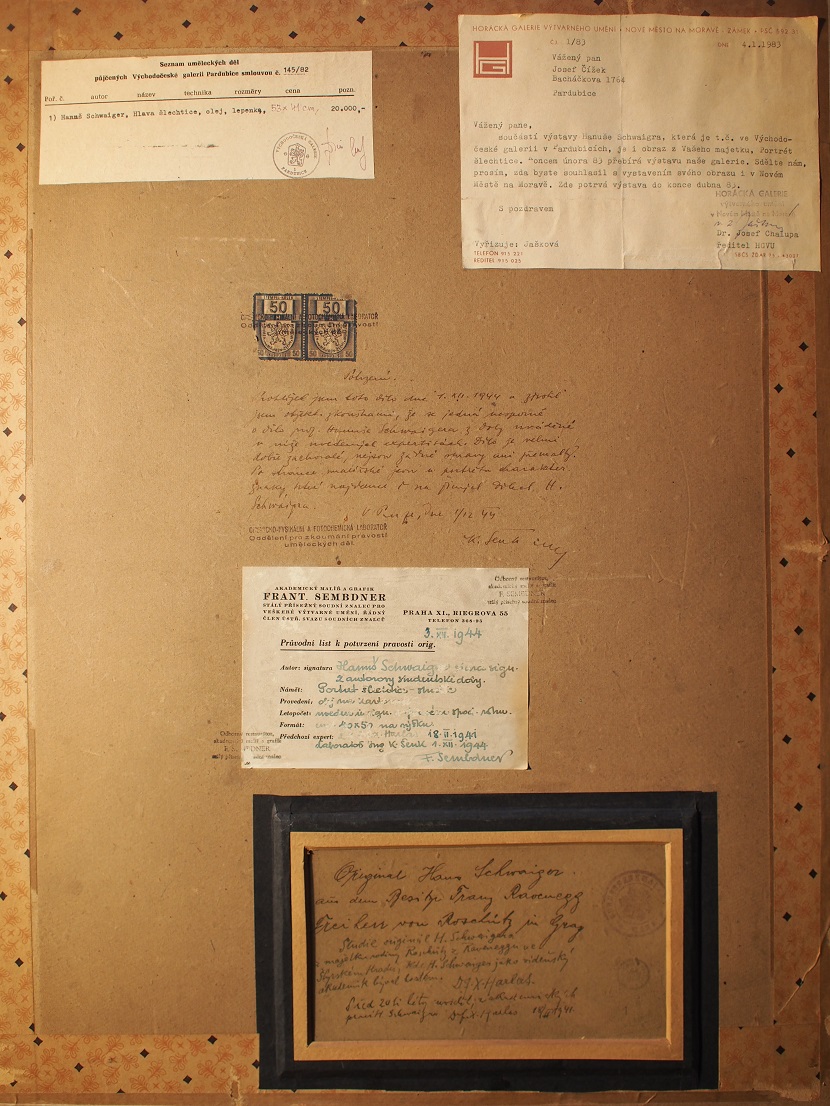 Seznam uměleckých děl
půjčených Východočeské galerii Pardubice smlouvou č. 145/82
Poř. č. autor název technika rozměry cena pozn.
1) Hanuš Schwaiger, Hlava šlechtice, olej, lepenka, 53 x 41 cm, 20.000,-
VÝCHODOČESKÁ GALERIE
PARDUBICE
HORÁCKÁ GALERIE VÝTVARNÉHO UMĚNÍ • NOVÉ MĚSTO NA MORAVĚ - ZÁMEK • PSČ 592 31
HG
ČJ 1/83 DNE 4.1.1983
Vážený pan
Josef Čížek
Bacháčkova 1764
Pardubice
Vážený pane,
součástí výstavy Hanuše Schwaigra, která je t.č. ve Východo-
české galerii v Pardubicích, je i obraz z Vašeho majetku, Portrét
šlechtice. Koncem února 83 přebírá výstavu naše galerie. Sdělte nám,
prosím, zda byste souhlasil s vystavením svého obrazu i v Novém
Městě na Moravě. Zde potrvá výstava do konce dubna 83.
HORÁCKÁ GALERIE
výtvarného umění
v Novém Městě na Moravě
S pozdravem
Dr. Josef Chalupa
Vyřizuje: Jašková
Ředitel HGVU
TELEFON 915 221
ŘEDITEL 915 025
SBČS ŽĎÁR
50 50
50 50 50 50
FOTOCHEMICKÁ LABORATOŘ
Oddělení pro zkoumání pravosti
uměleckých děl.
Potvrzení.
Prohlížel jsem toto dílo dne 1. XII. 1944 a zjistil
jsem objekt. zkouškami, že se jedná nesporně
o dílo prof. Hanuše Schwaigera z doby uváděné
v níže uvedených expertisách. Dílo je velmi
dobře zachovalé, nejsou žádné opravy ani přemalby.
Po stránce malířské jsou a portrétu charakter.
znaky, které najdeme i na jiných dílech H.
Schwaigra.
V Praze, dne 1/12 44
CHEMICKO-FYSIKÁLNÍ A FOTOCHEMICKÁ LABORATOŘ
Oddělení pro zkoumání pravosti
uměleckých děl.
K. Šenk
AKADEMICKÝ MALÍŘ A GRAFIK
FRANT. SEMBDNER
STÁLÝ PŘÍSEŽNÝ SOUDNÍ ZNALEC PRO
VEŠKERÉ VÝTVARNÉ UMĚNÍ, ŘÁDNÝ
ČLEN ÚSTŘ. SVAZU SOUDNÍCH ZNALCŮ
PRAHA XI., RIEGROVA 55
TELEFON 266-93
3. XII. 1944
Průvodní list k potvrzení pravosti orig.
Autor: signatura Hanuš Schwaiger sign.
z autorovy studentské doby.
Námět: Portrét šlechtice
Provedení:
Letopočet:
Formát: 40x51 na výšku
Předchozí expert: Harlas 18.II.1941
Laboratoř Ing K. Šenk 1.XII.1944
F. Sembdner
Odborný restaurátor,
akademický malíř a grafik
F. SEMBDNER
stálý přísežný soudní znalec
Odborný restaurátor,
akademický malíř a grafik
F. SEMBDNER
stálý přísežný soudní znalec
Original Hans Schwaiger
aus dem Besitze Franz Ravenegg
Freiherr von Roschütz in Graz
Studie originál H. Schwaigera
z majetku rodiny Roschütz z Raveneggu ve
Štýrském Hradci, kde H. Schwaiger jako vídeňský
akademik býval hostem. Dr FX Harlas.
Před 20ti léty
prací H. Schwaigra Dr F.X. Harlas 18/II 1941.